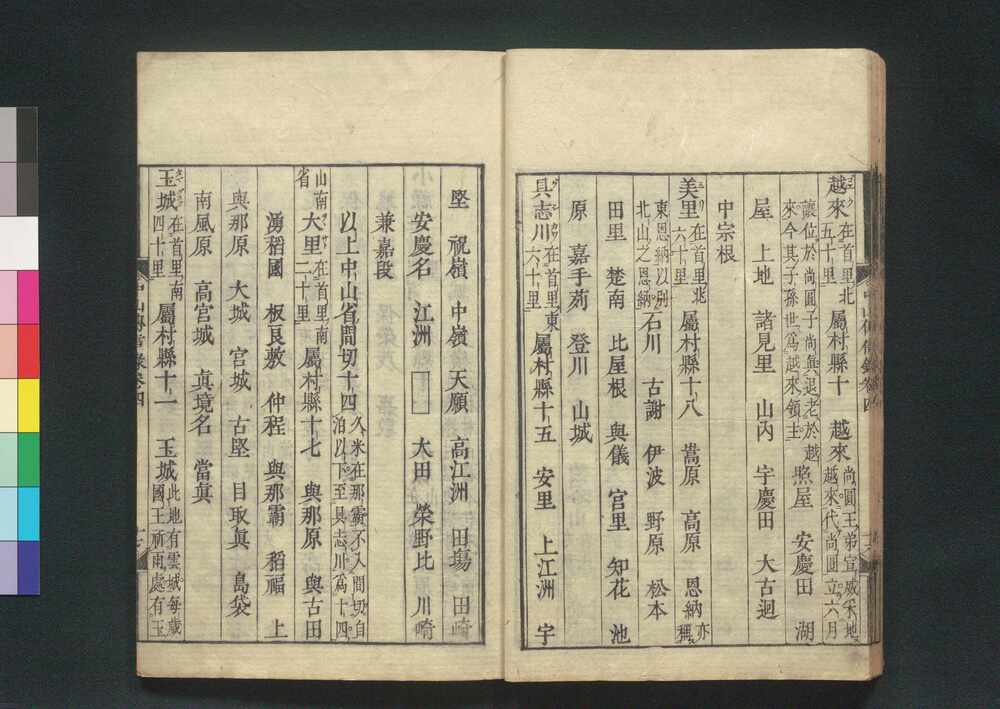 越來在首里北五十里屬村縣十 越來尚圓王弟宣威采地越來代尚圓立六月
讓位於尚圓子尚眞退老於越來今其子孫世爲越來領主照屋 安慶田 湖
屋 上地 諸見里 山內 宇慶田 大古迴
中宗根
美里在首里北六十里屬村縣十八 嵩原 高原 恩納亦
東恩納以別北山之恩納石川 古謝 伊波 野原 松本
田里 楚南 比屋根 與儀 宮里 知花 池
原 嘉手苅 登川 山城
具志川在首里東六十里屬村縣十五 安里 上江洲 宇
堅 祝嶺 中嶺 天願 高江洲 田塲 田崎
安慶名 江洲 □ 大田 榮野比 川崎
兼嘉段
以上中山省間切十四久米在那霸不入間切自泊以下至具志川爲十四
山南省大里在首里南二十里屬村縣十七 與那原 與古田
湧稻國 板良敷 仲程 與那霸 稻福 上
與那原 大城 宮城 古堅 目取眞 島袋
南風原 高宮城 眞境名 當眞
玉城在首里南四十里屬村縣十一 玉城此地有雲城每歲國王祈雨處有玉